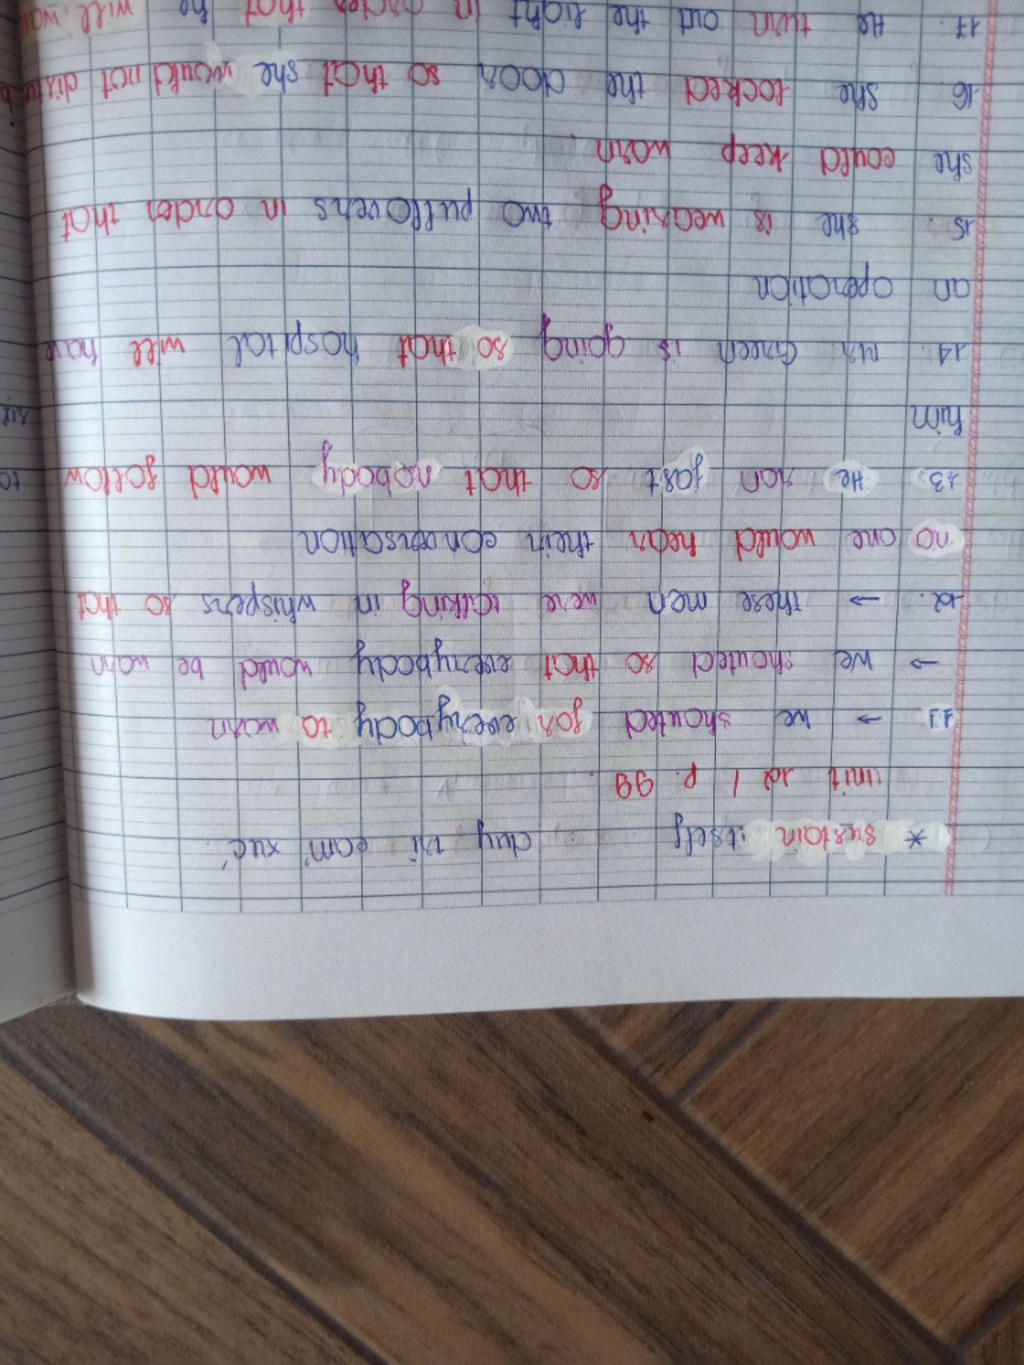 * sustain itself duy trì cảm xúc
unit 12 / p. 99.
11 → we shouted for everybody to warn
→ we shouted so that everybody would be warn
12. → these men were talking in whispers so that
no one would hear their conversation
13. He ran fast so that nobody would follow
him
14. Mr Green is going so that hospital will have
an operation
15. she is wearing two pullovers in order that
she could keep warn.
16. she locked the door so that she would not distu
17. He turn out the light in order that he will